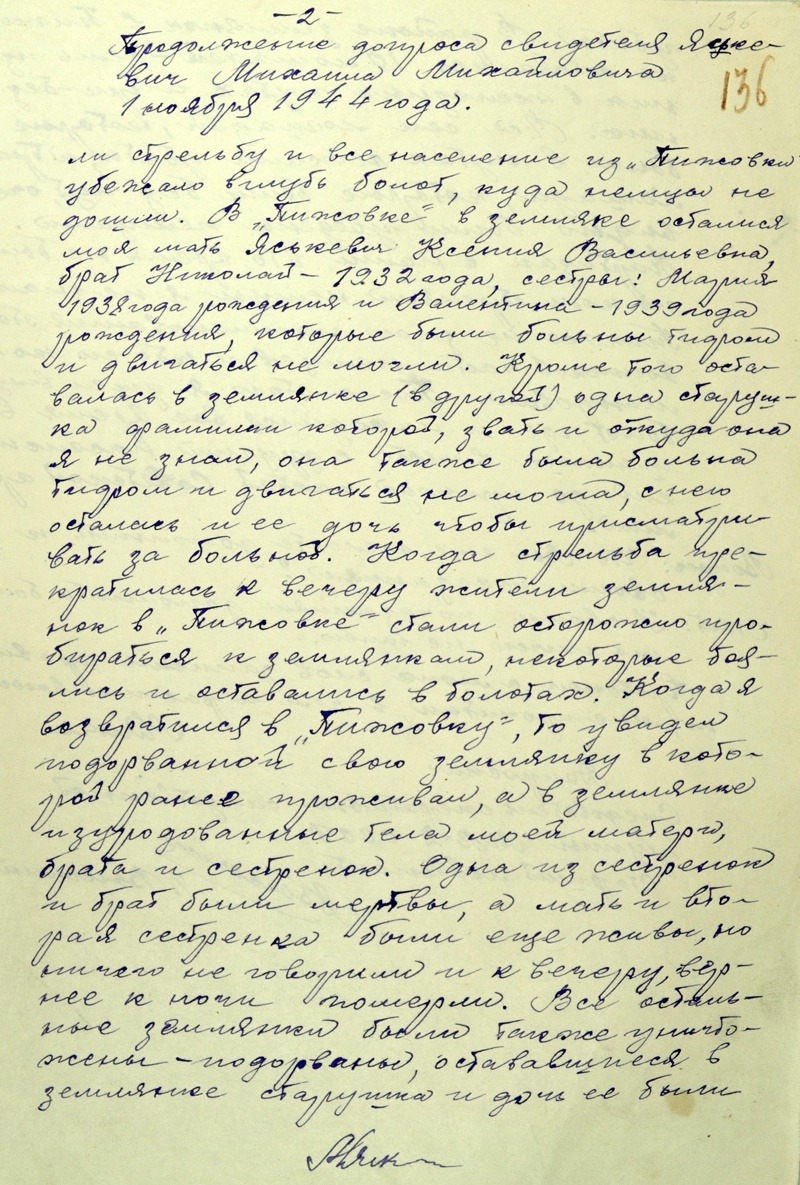 -2-
136
Продолжение допроса свидетеля Яцке-
вич Михаила Михайловича
1 ноября 1944 года.
136
ли стрельбу и все население из „Пижовки
убежало вглубь болот, куда немцы не
дошли. В „Пижовке" в земляке осталися
моя мать Яськевич Ксения Васильевна,
брат Николай – 1932 года, сестры: Мария
1938 года рождения и Валентина – 1939 года
рождения, которые были больны тифом
и двигаться не могли. Кроме того оста-
валась в землянке (в другой) одна старуш-
ка фамилии которой, звать и откуда она
я не знаю, она также была больна
тифом и двигаться не могла, с нею
осталась и ее дочь чтобы присматри-
вать за больной. Когда стрельба пре-
кратилась к вечеру жители земля-
нок в „Пижовке" стали осторожно про-
бираться к землянкам, некоторые боя-
лись и оставались в болотах. Когда я
возвратился в „Пижовку", то увидел
подорванной свою землянку в кото-
рой ранее проживал, а в землянке
изуродованные тела моей матери,
брата и сестренок. Одна из сестренок
и брат были мертвы, а мать и вто-
рая сестренка были еще живы, но
ничего не говорили и к вечеру, вер-
нее к ночи померли. Все осталь-
ные землянки были также уничто-
жены – подорваны, остававшиеся в
землянке старушка и дочь ее были